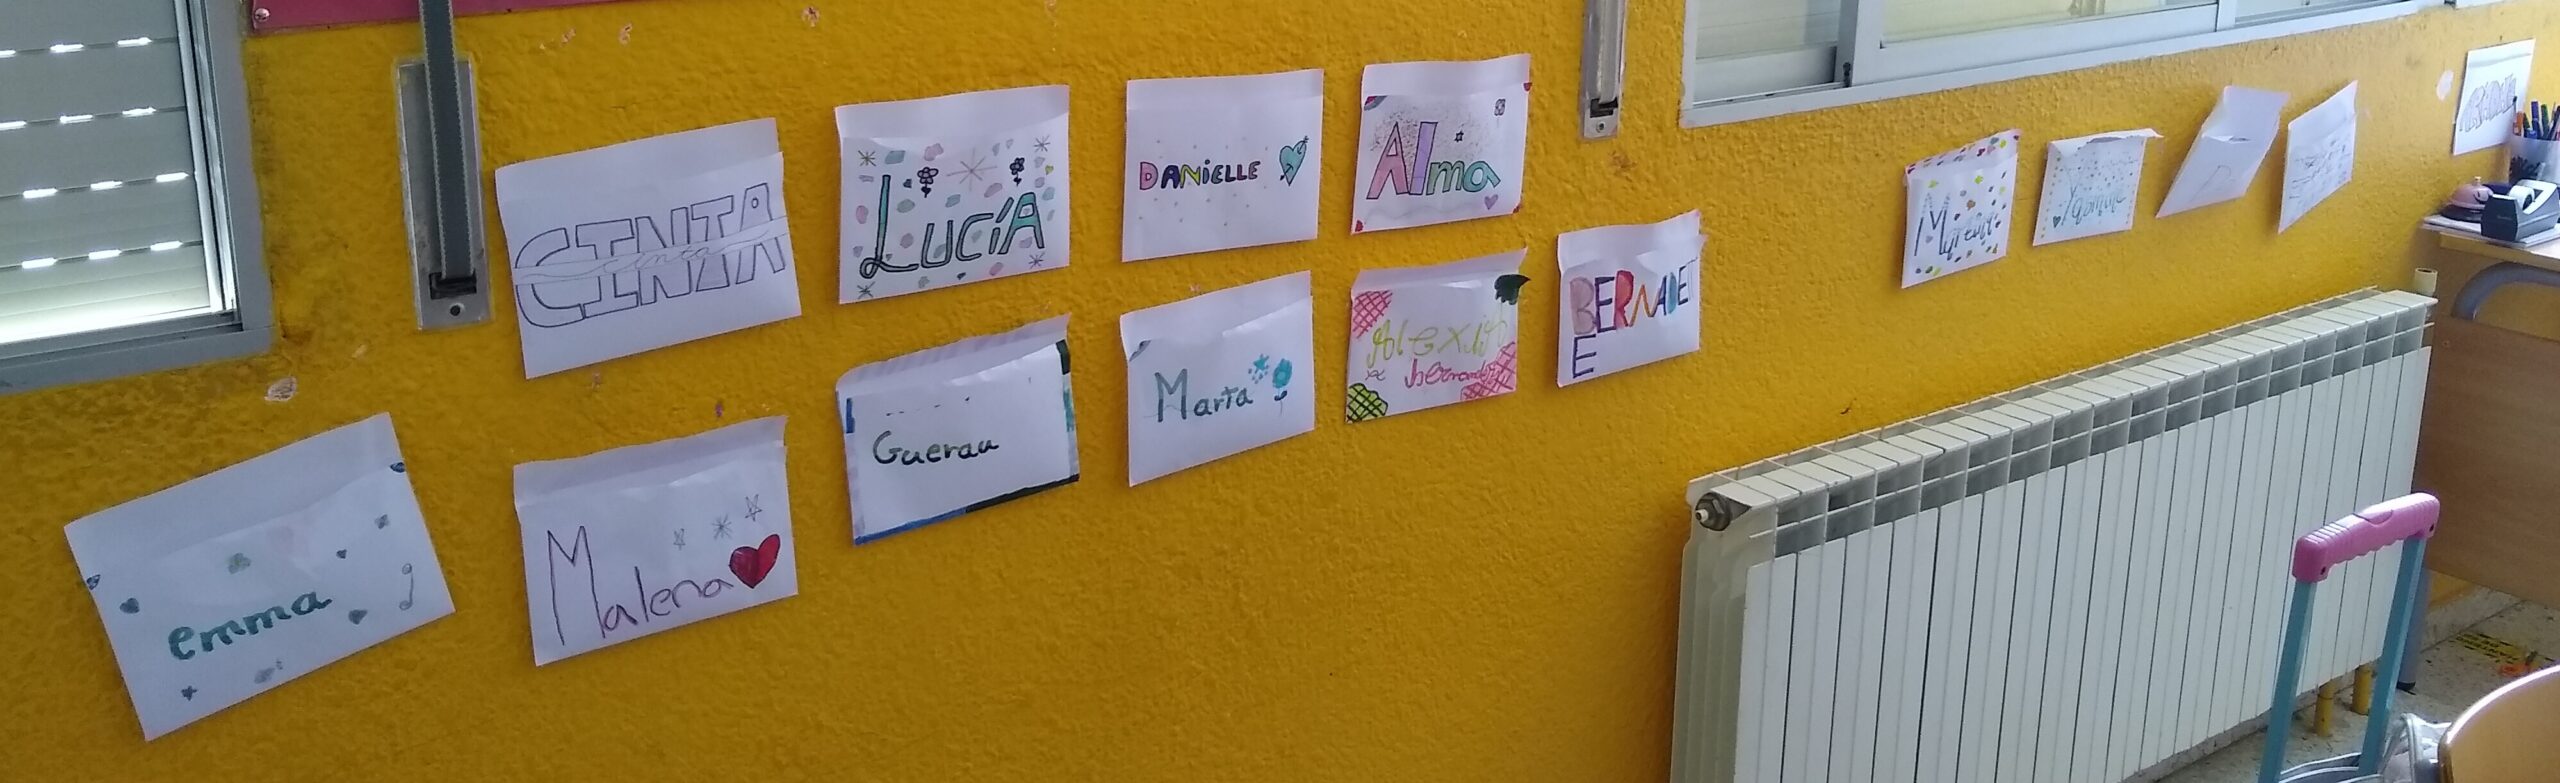 CINTA
cinta
LUCÍA
DANiELLE
Alma
emma
Malena
Guerau
Marta
BERNADET
E
Yasmine